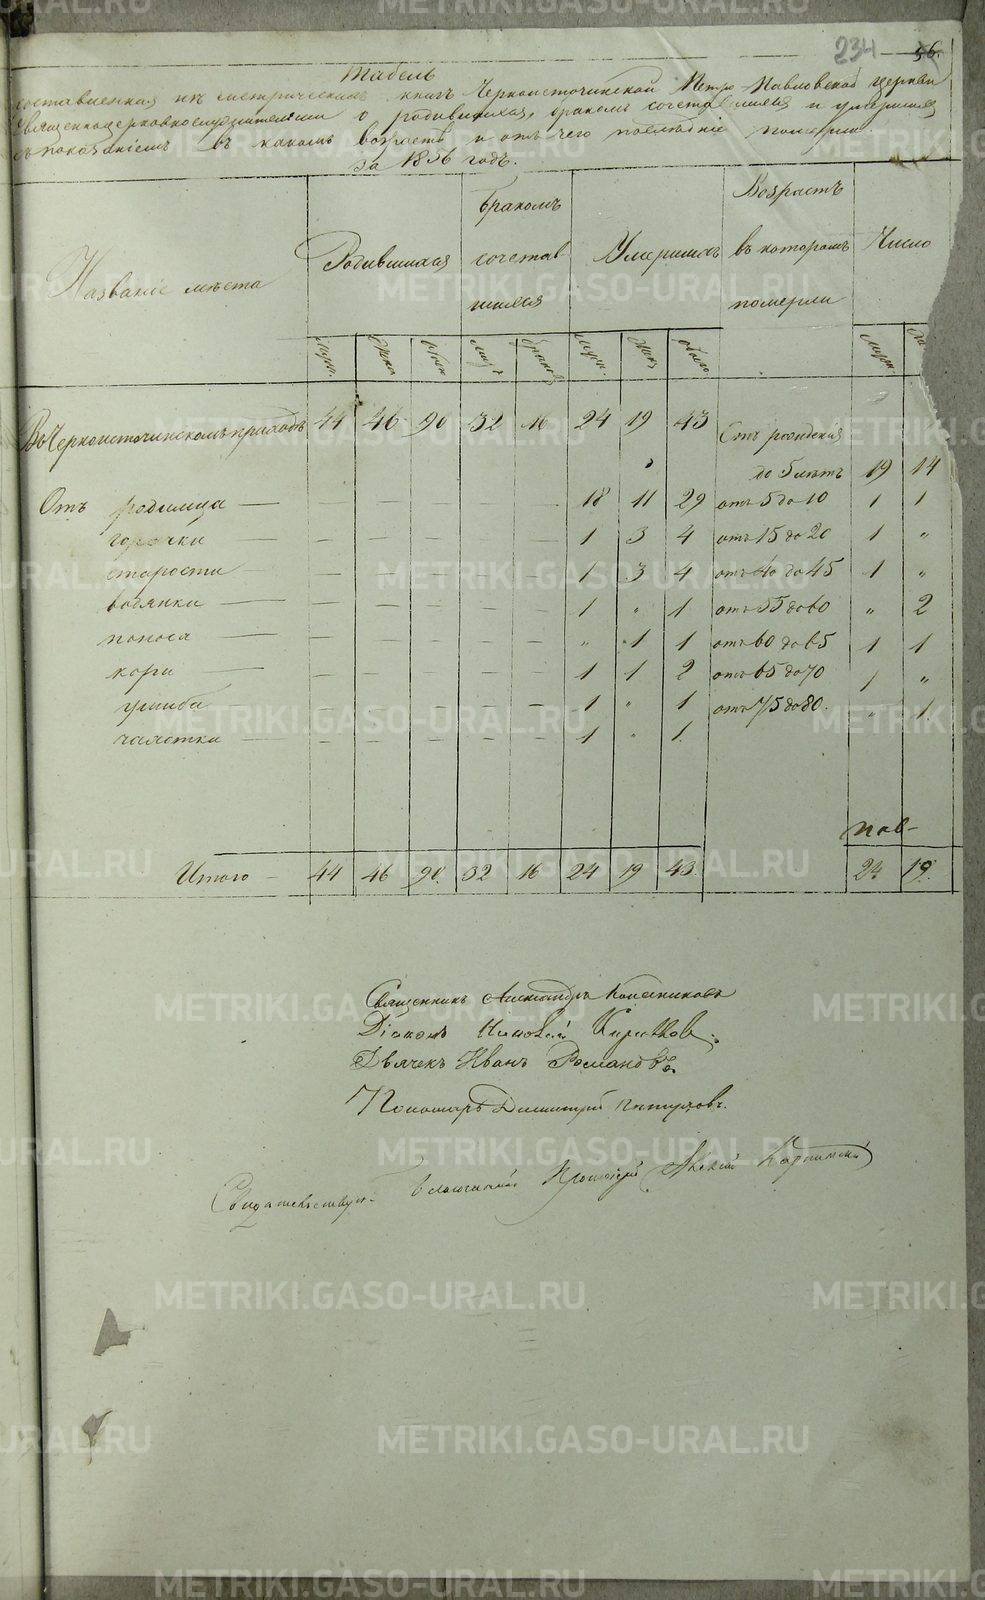 234 56.
Табель
составленная изъ метрическихъ книгъ Черноисточинской Петро-Павловской церкви
Священноцерковнослужителями о родившихся, бракомъ сочетавшихся и умершихъ
съ показаніемъ въ какомъ возрастѣ и отъ чего послѣдніе померли
за 1856 годъ.
Названіе мѣста
Родившихся
бракомъ сочетав-шихся
Умершихъ
Возрастъ въ которомъ померли
Число
Въ Черноисточинскомъ приходѣ 44 46 90 32 16 24 19 43 Отъ рожденія
до 5 лѣтъ 19 14
Отъ родимца — 18 11 29 отъ 5 до 10 1 1
горячки — — — — — — 1 3 4 отъ 15 до 20 1 "
старости — — — — — — 1 3 4 отъ 40 до 45 1 "
водянки — — — — — — 1 " 1 отъ 55 до 60 " 2
поноса — — — — — — " 1 1 отъ 60 до 65 1 1
кори — — — — — — 1 1 2 отъ 65 до 70 1 "
ушиба — — — — — — 1 " 1 отъ 75 до 80. " 1
чахотки — — — — — — 1 " 1
Итого — 44 46 90 32 16 24 19 43 24 19
Священникъ Александръ
Діаконъ
Дьячекъ Иванъ Романовъ
Пономарь Димитрій
METRIKI.GASO-URAL.RU